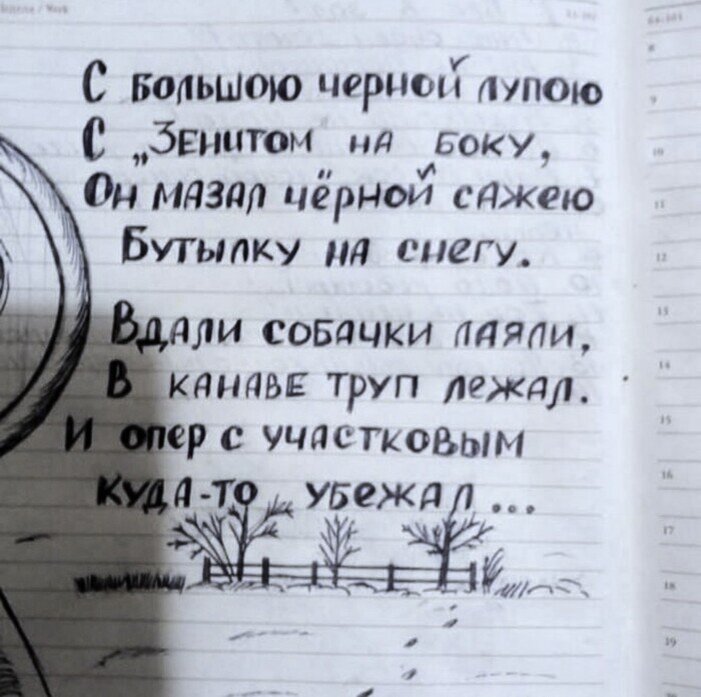 С большою черной лупою
С „Зенитом на боку,
Он мазал чёрной сажею
Бутылку на снегу.
Вдали собачки лаяли,
В канаве труп лежал.
И опер с участковым
куда-то убежал...
9
10
11
12
13
14
15
16
17
18
19